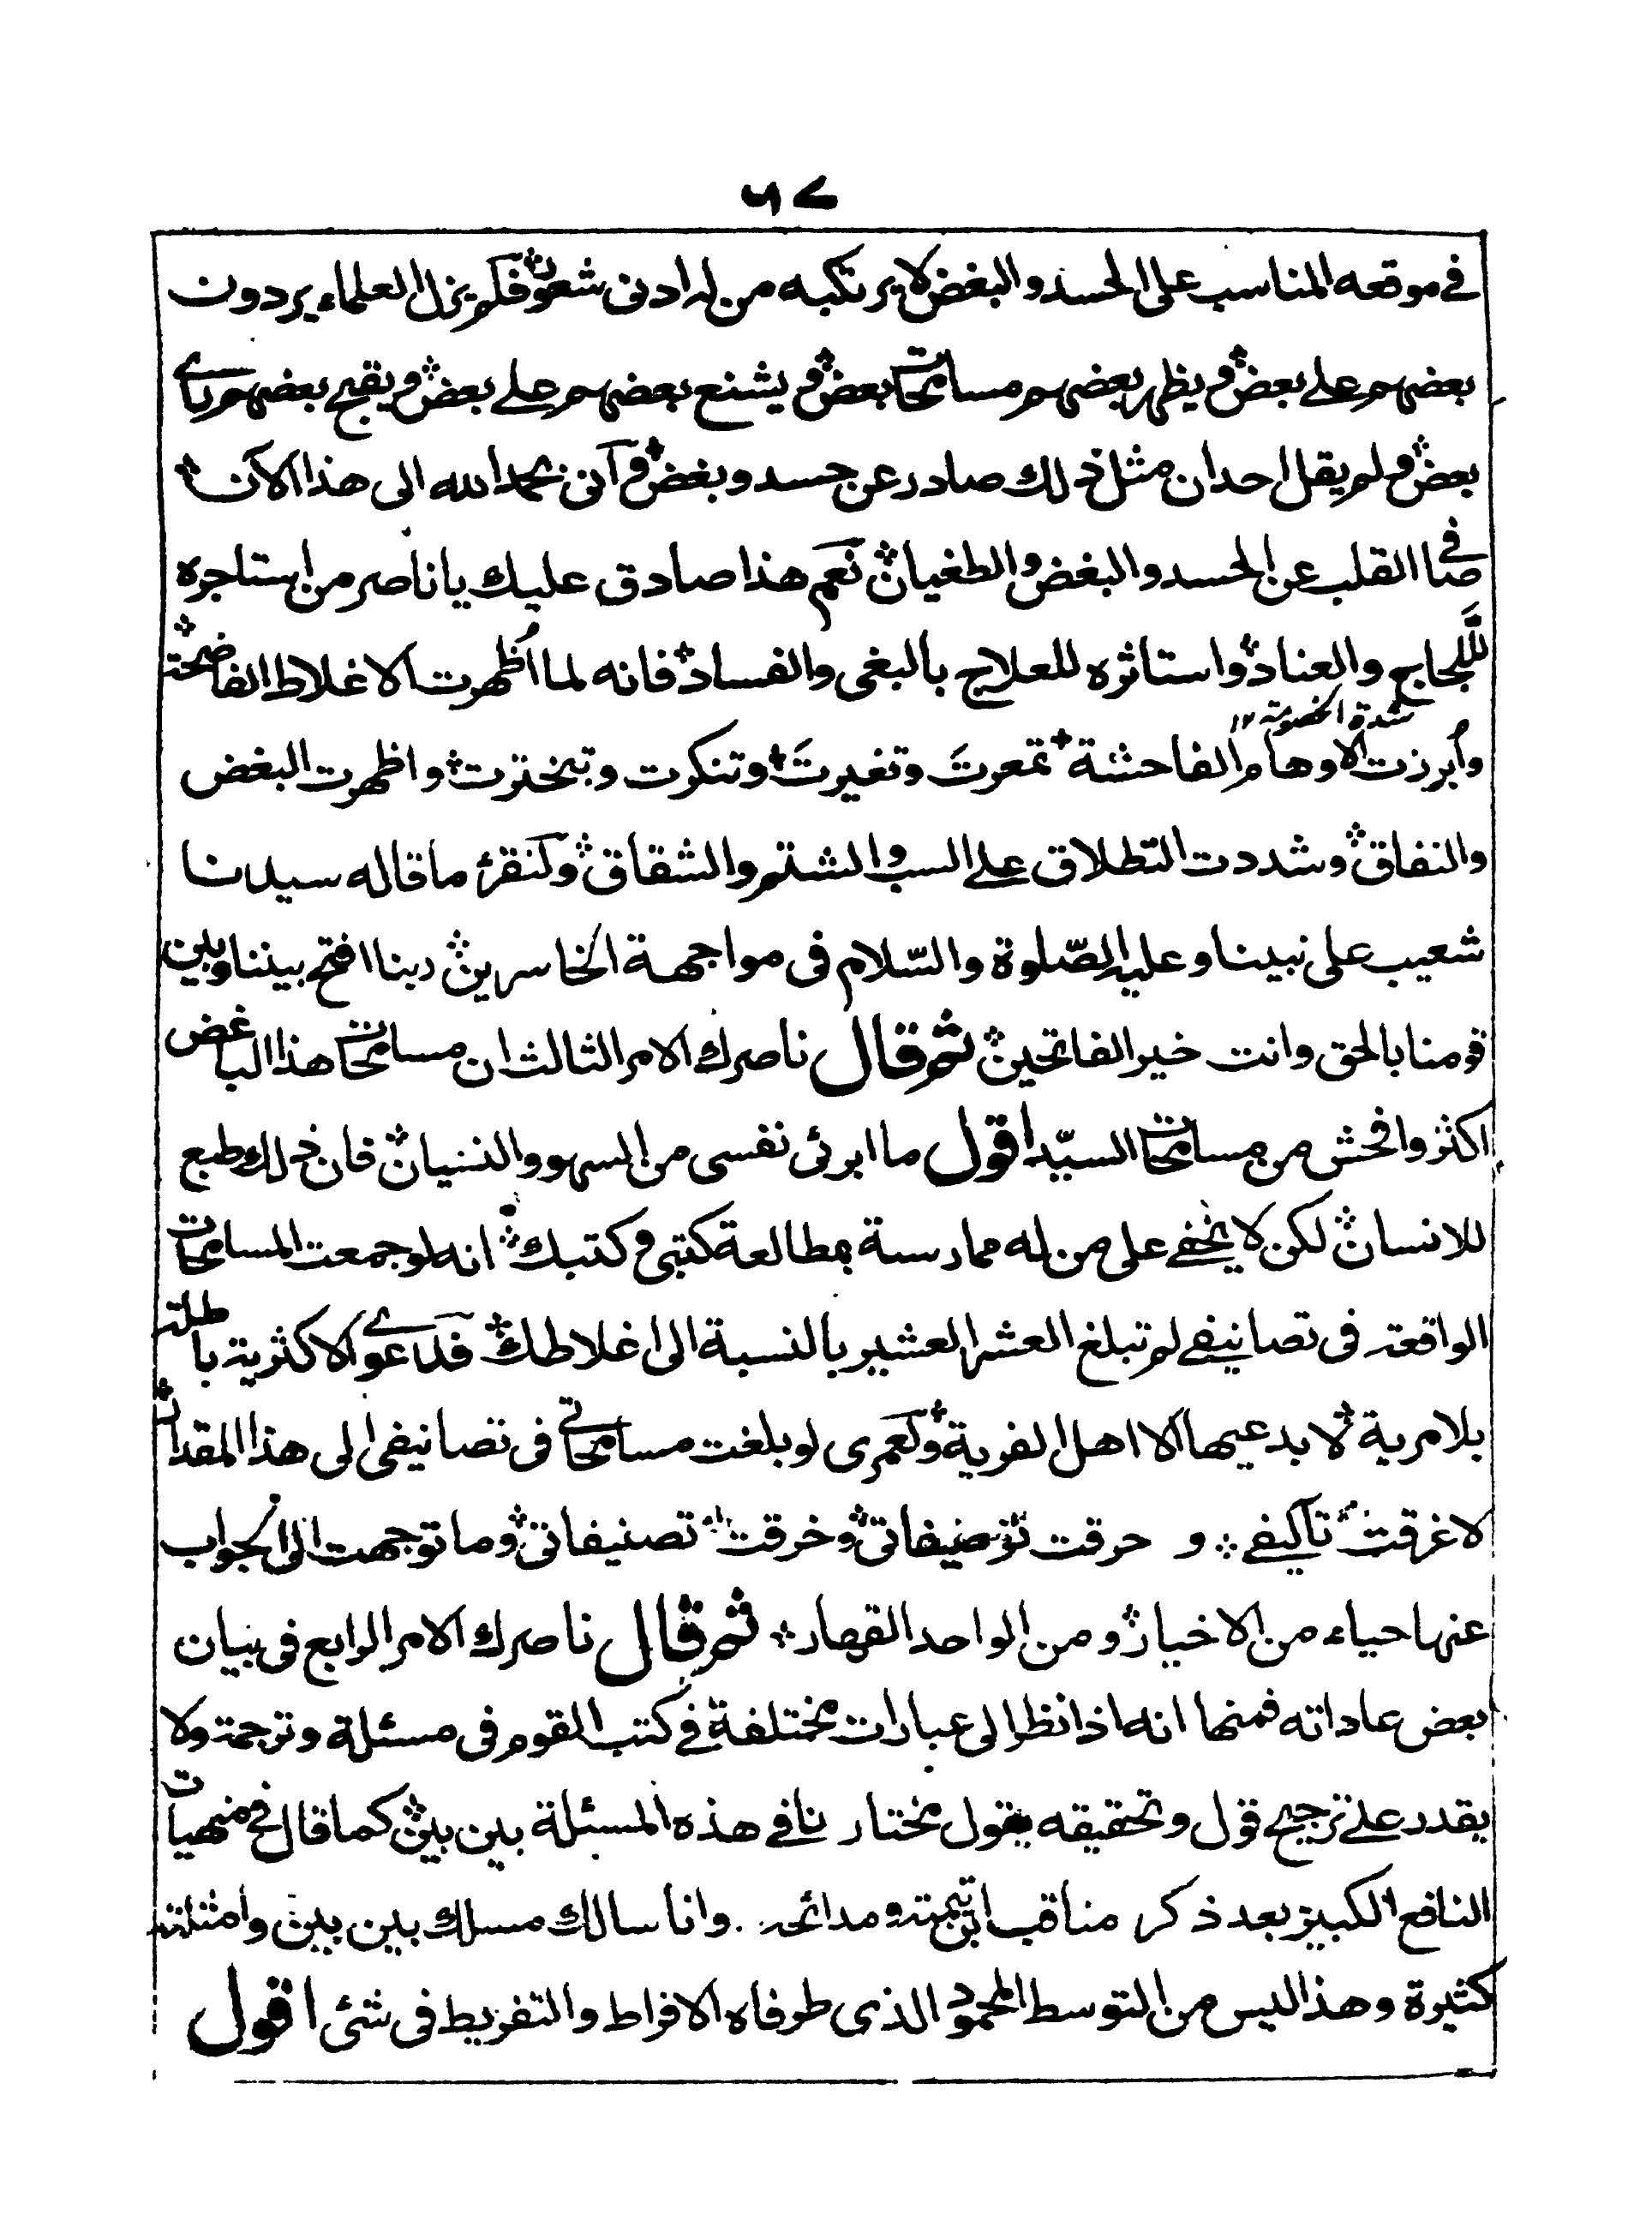 ٦٧
في موقعه المناسب على الحسد والبغض لا يرتكبه من له ادنى شعور فلم يزل العلماء يردون
بعضهم على بعض ويظهر بعضهم مسامحات بعض ويشنع بعضهم على بعض ويقبح بعضهم راى
بعض ولم يقل احد ان مثل ذلك صادر عن حسد وبغض وآنى بحمد الله الى هذا الآن
صافى القلب عن الحسد والبغض والطغيان نعم هذا صادق عليك يا ناصر من استاجره
للّجاج والعناد واستاثره للعلاج بالبغى والفساد فانه لما اُظهرت الاغلاط الفاضحة
شدة الخصومة ١٢
واُبرزت الاوهام الفاحشة تمعرتَ وتغيرتَ وتنكرت وتبخترت واظهرت البغض
والنفاق وشددت التطلاق على السب والشتم والشقاق ولنقرئ ما قاله سيدنا
شعيب على نبينا وعليه الصّلوة والسّلام فى مواجهة الخاسرين ربنا افتح بيننا وبين
قومنا بالحق وانت خير الفاتحين ثم قال ناصرك الامر الثالث ان مسامحات هذا الباغض
اكثر وافحش من مسامحات السيّد اقول ما ابرئى نفسى من السهو والنسيان فان ذلك طبع
للانسان لكن لا يخفى على من له ممارسة بمطالعة كتبى وكتبك انه لو جمعت المسامحات
الواقعة فى تصانيفى لم تبلغ العشر العشير بالنسبة الى اغلاطك فدعوى الاكثرية باطلة
بلا مرية لا يدعيها الا اهل الفرية ولعمرى لو بلغت مسامحاتى فى تصانيفى الى هذا المقدار
لاغرقت تآليفى و حرقت ترصيفاتى وخرقت تصنيفاتى وما توجهت الى الجواب
عنها حياء من الاخيار ومن الواحد القهار ثم قال ناصرك الامر الرابع فى بيان
بعض عاداته فمنها انه اذا نظر الى عبارات مختلفة في كتب القوم فى مسئلة وترجمة ولا
يقدر على ترجيح قول وتحقيقه يقول مختارنا في هذه المسئلة بين بين كما قال في منهيات
النافع الكبير بعد ذكر مناقب ابن تيمية ومدائحه وانا سالك مسلك بين بين وامثلته
كثيرة وهذا ليس من التوسط المحمود الذى طرفاه الافراط والتفريط فى شئى اقول